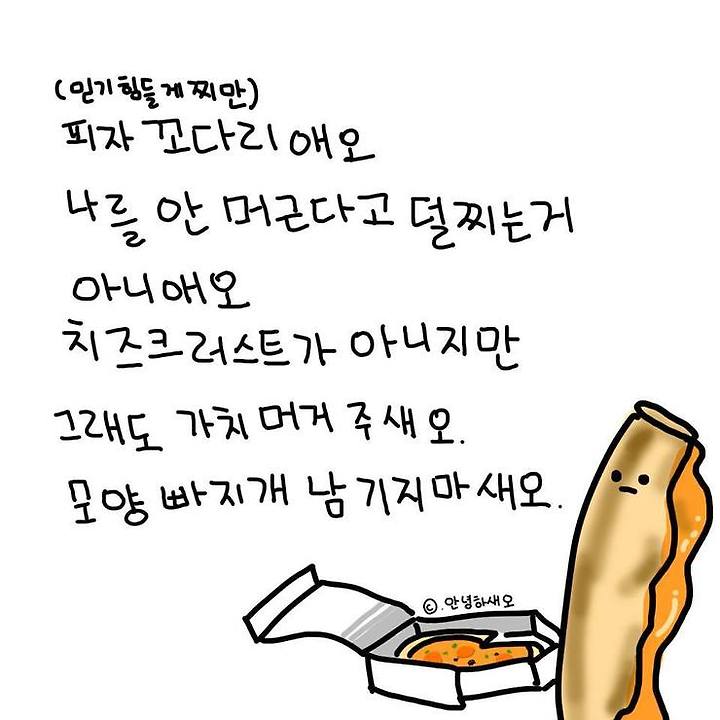 (믿기힘들게찌만)
피자 꼬다리애오
나를 안 머근다고 덜찌는거
아니애오
치즈크러스트가 아니지만
그래도 가치머거 주새오.
모양 빠지개 남기지마새오.
©.안녕하새오